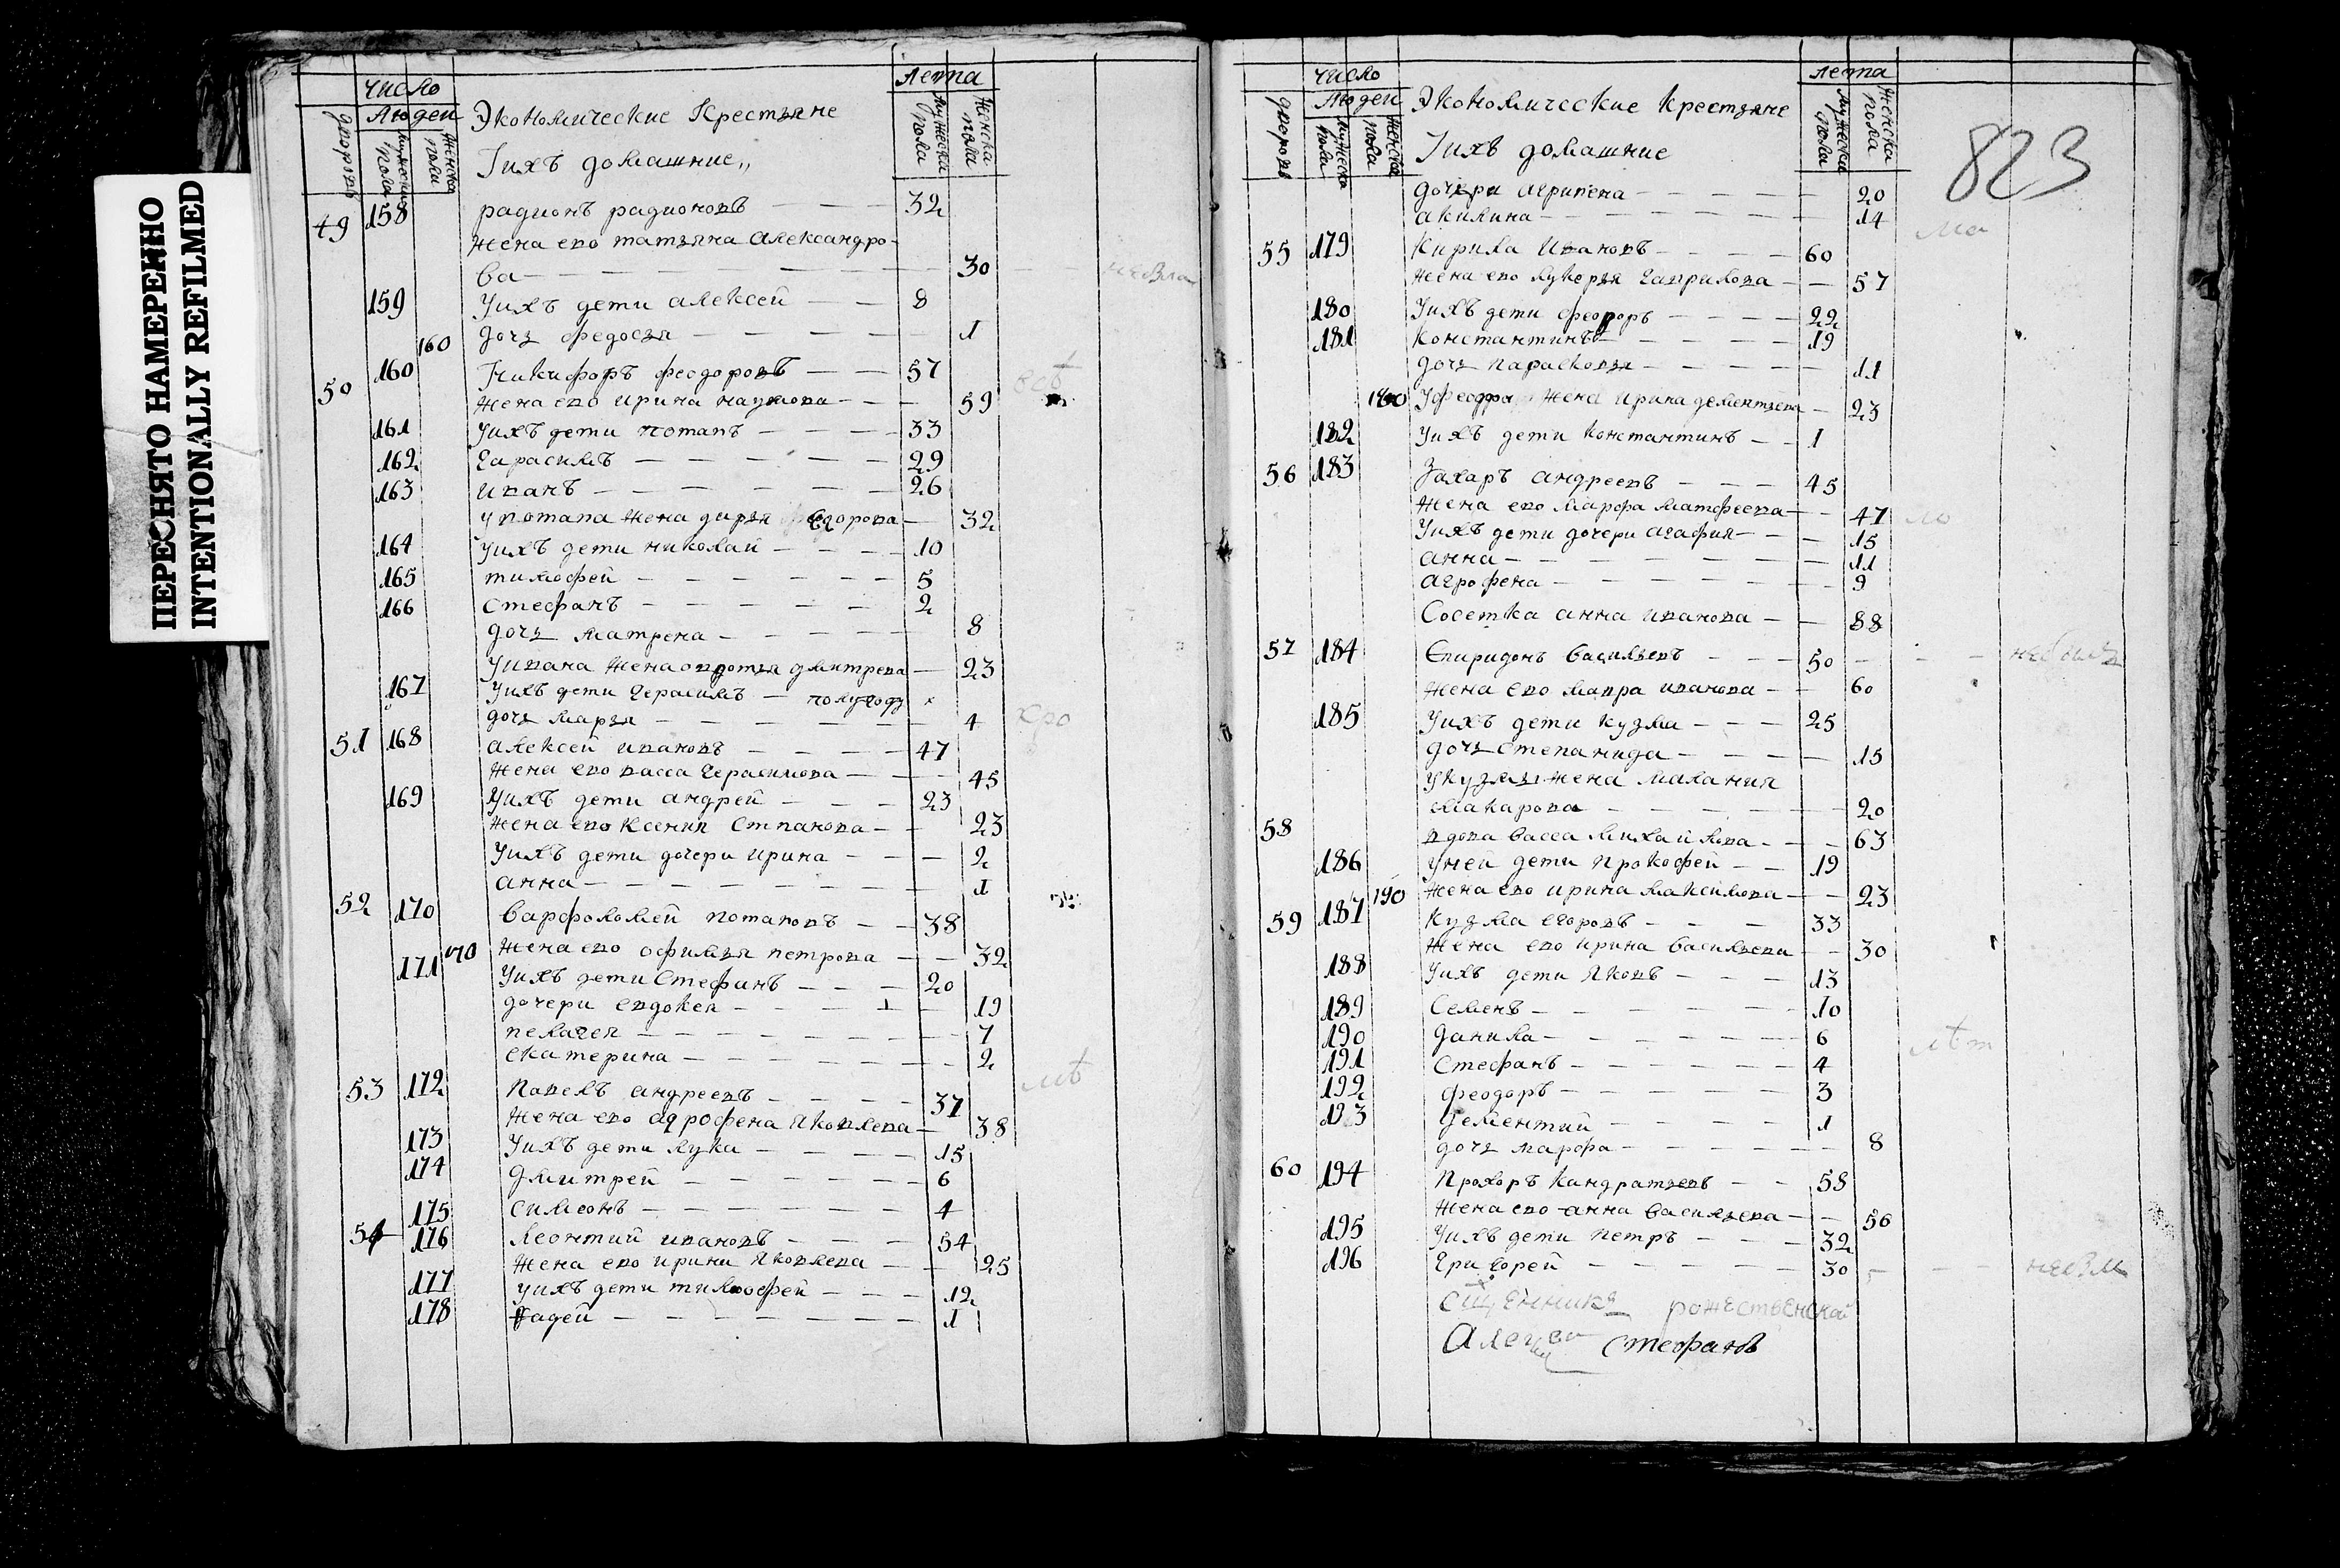 ПЕРЕСНЯТО НАМЕРЕННО
INTENTIONALLY REFILMED
число
Людей
дворовъ
мужеска пола
женска пола
Экономические Крестьяне
Iихъ домашние„
лета
мужеска пола
женска пола
49 158 радионъ радионовъ — — — 32
жена ево татьяна Александро-
ва — — — 30
159 Уихъ дети алексей — — 8
160 дочь федосья — — — 1
50 160 Никифоръ феодоровъ — — 57
жена ево ирина наумова — — 59
161 Уихъ дети потапъ — — — 33
162 Гарасимъ — — — 29
163 иванъ — — — 26
у потапа жена дарья федорова — 32
164 Уихъ дети николай — — — 10
165 тимофей — — — 5
166 стефанъ — — — 2
дочь матрена — — — 8
Уивана жена авдотья дмитрева — 23
167 Уихъ дети Герасимъ — полугоду
дочь марья — — — 4
51 168 алексей ивановъ — — — 47
жена ево васса Герасимова — — 45
169 Уихъ дети андрей — — — 23
жена ево Ксения Стпанова — — 23
Уихъ дети дочери ирина — — — 2
анна — — — 1
52 170 варфоломей потаповъ — — 38
170 жена ево офимья петрова — — 32
171 Уихъ дети Стефанъ — — — 20
дочери евдокея — — — 19
пелагея — — — 7
екатерина — — — 2
53 172 Павелъ андреевъ — — — 37
жена ево агрофена Яковлева — 38
173 Уихъ дети лука — — — 15
174 дмитрей — — — 6
175 симеонъ — — — 4
54 176 леонтий ивановъ — — — 54
жена ево ирина Яковлева — — 25
177 уихъ дети тимофей — — — 12
178 фадей — — — 1
число
Людей
дворовъ
мужеска пола
женска пола
Экономические крестьяне
Iихъ домашние
лета
мужеска пола
женска пола
823
дочери агрипена — — — 20
акилина — — — 14
55 179 Кирила Ивановъ — — — 60
жена ево лукерья Гаврилова — — 57
180 Уихъ дети феодоръ — — — 22
181 Константинъ — — — 19
дочь парасковья — — — 11
180 Уфеодора жена ирина дементьева — 23
182 Уихъ дети константинъ — — 1
56 183 Захаръ андреевъ — — — 45
жена ево марфа матфеева — — 47
Уихъ дети дочери агафия — — — 15
анна — — — 11
агрофена — — — 9
Сосетка анна иванова — — 88
57 184 Спиридонъ васильевъ — — — 50
жена ево мавра иванова — — 60
185 Уихъ дети кузма — — — 25
дочь степанида — — — 15
укузмы жена малания
макарова — — — 20
58 вдова васса михайлова — — — 63
186 Уней дети прокофей — — 19
190 жена ево ирина максимова — — 23
59 187 Кузма егоровъ — — — 33
жена ево ирина васильева — — 30
188 Уихъ дети Яковъ — — — 13
189 Семенъ — — — 10
190 данила — — — 6
191 Стефанъ — — — 4
192 феодоръ — — — 3
193 дементий — — — 1
дочь марфа — — — 8
60 194 Прохоръ кандратьевъ — — 58
жена ево анна васильева — — 56
195 Уихъ дети петръ — — — 32
196 Григорей — — — 30
рожественской
Алексеи Стефановъ